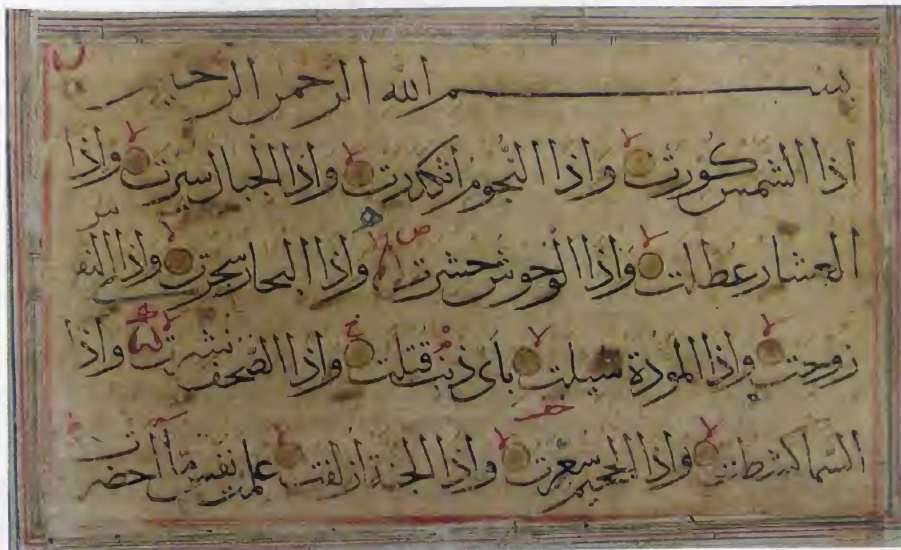 بسم الله الرحمن الرحيم
اذا الشمس كورت واذا النجوم انكدرت واذا الجبال سيرت واذا
العشار عطلت واذا الوحوش حشرت واذا البحار سجرت واذا النفوس
زوجت واذا الموؤدة سيلت باى ذنب قتلت واذا الصحف نشرت واذا
السما كشطت واذا الجحيم سعرت واذا الجنة ازلفت علمت نفس ما احضرت